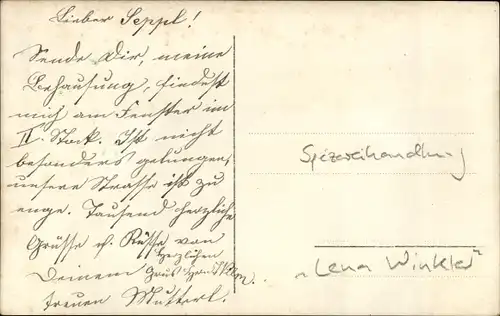 Lieber Seppl!
Sende Dir, meine
Behausung, findest
mich am Fenster im
II. Stock. Ist nicht
besonders gelungen,
unsere Strasse ist zu
enge. Tausend herzliche
Grüsse u. Küsse von
Deinem
treuen Mutterl.
herzlichen
Gruss
Spezereihandlung
"Lena Winkler"